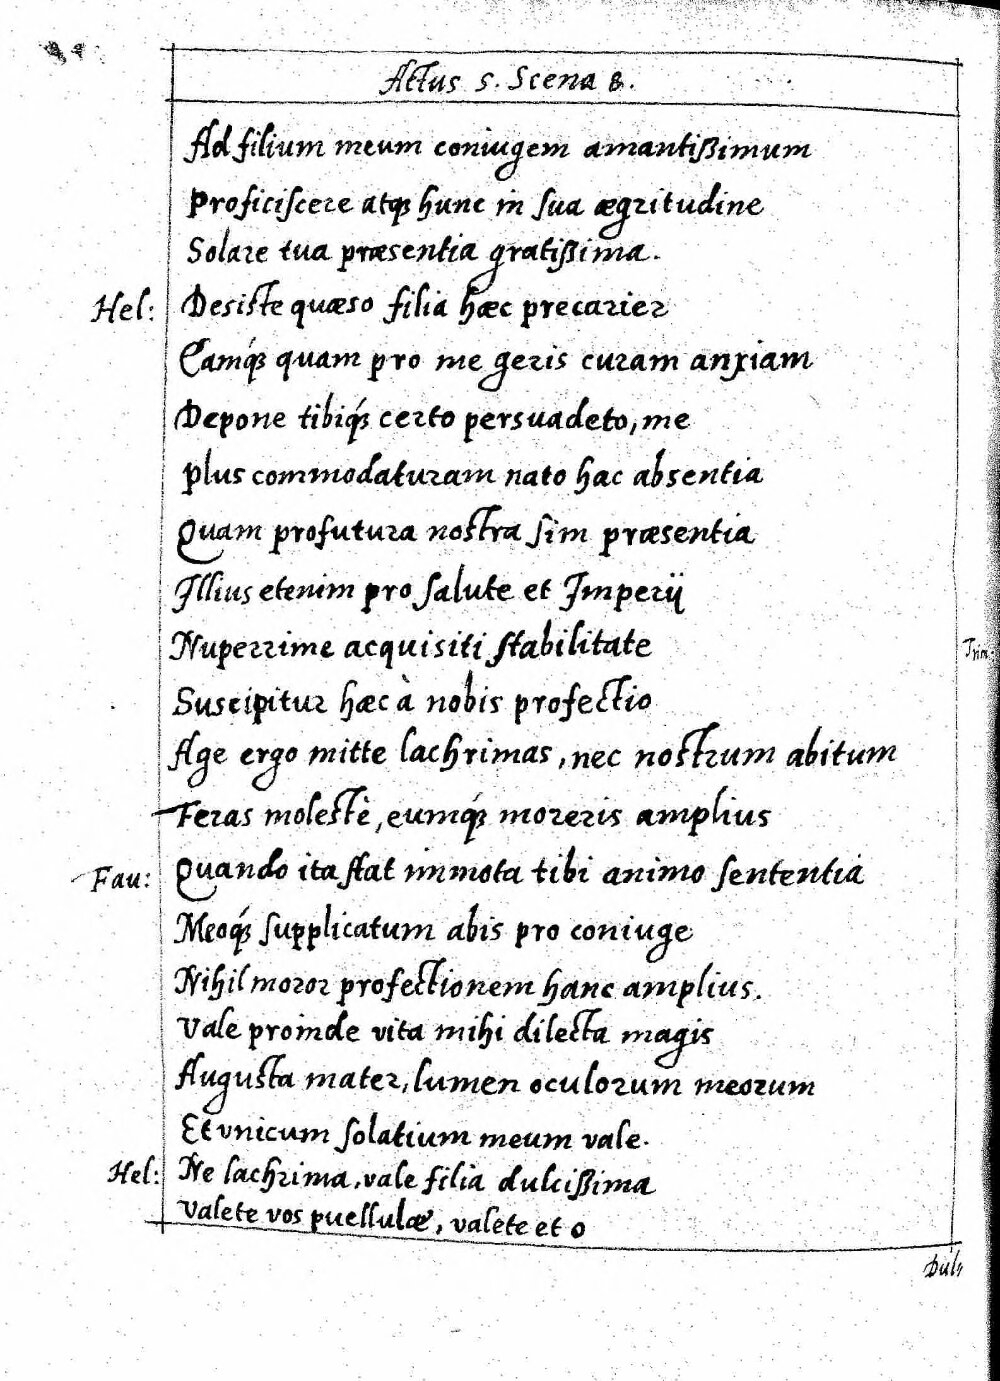 Actus 5. Scena 8.
Ad filium meum coniugem amantißimum
Proficiscere atq; hunc in sua ægritudine
Solare tua præsentia gratißima.
Hel: Desiste quæso filia hæc precarier
Eamq́; quam pro me geris curam anxiam
Depone tibiq́; certo persuadeto, me
Plus commodaturam nato hac absentia
Quam profutura nostra sim præsentia
Illius etenim pro salute et Imperij
Nuperrime acquisiti stabilitate
Suscipitur hæc à nobis profectio
Age ergo mitte lachrimas, nec nostrum abitum
Feras molestè, eumq́; moreris amplius
Fau: Quando ita stat immota tibi animo sententia
Meoq́; supplicatum abis pro coniuge
Nihil moror profectionem hanc amplius.
Vale proinde vita mihi dilecta magis
Augusta mater, lumen oculorum meorum
Et vnicum solatium meum vale.
Hel: Ne lachrima, vale filia dulcißima
Valete vos puellulæ, valete et o